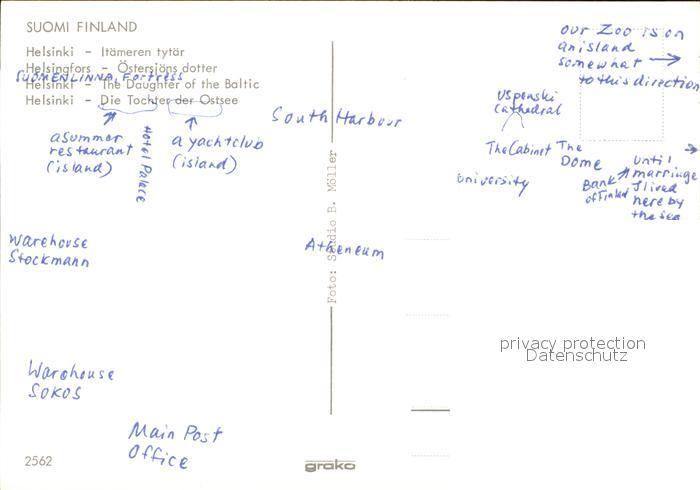 SUOMI FINLAND
Helsinki – Itämeren tytär
Helsingfors – Östersjöns dotter
SUOMENLINNA, Fortress
Helsinki – The Daughter of the Baltic
Helsinki – Die Tochter der Ostsee
a summer
restaurant
(island)
Hotel Palace
a yachtclub
(island)
South Harbour
our Zoo is on
an island
somewhat →
to this direction
Uspenski
Cathedral
The Cabinet
The
Dome
University
Bank
of Finland
until
marriage
I lived
here by
the sea
Warehouse
Stockmann
Atheneum
Foto: Studio B. Möller
privacy protection
Datenschutz
Warehouse
SOKOS
Main Post
Office
2562
grako